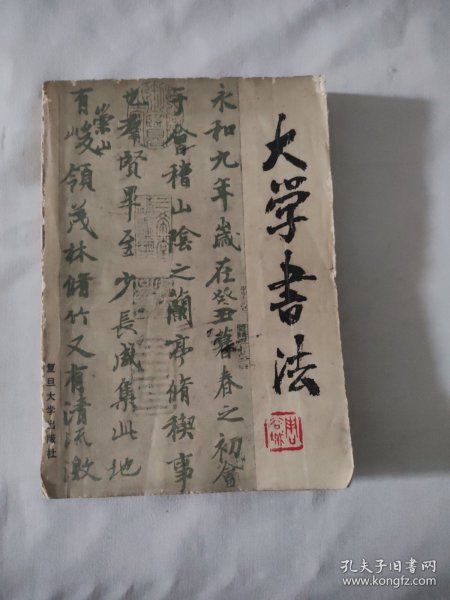 大学书法
周谷城
永和九年歲在癸丑暮春之初會
于會稽山陰之蘭亭脩稧事
也羣賢畢至少長咸集此地
有崇山峻領茂林脩竹又有清流激
复旦大学出版社
孔夫子旧书网
www.kongfz.com